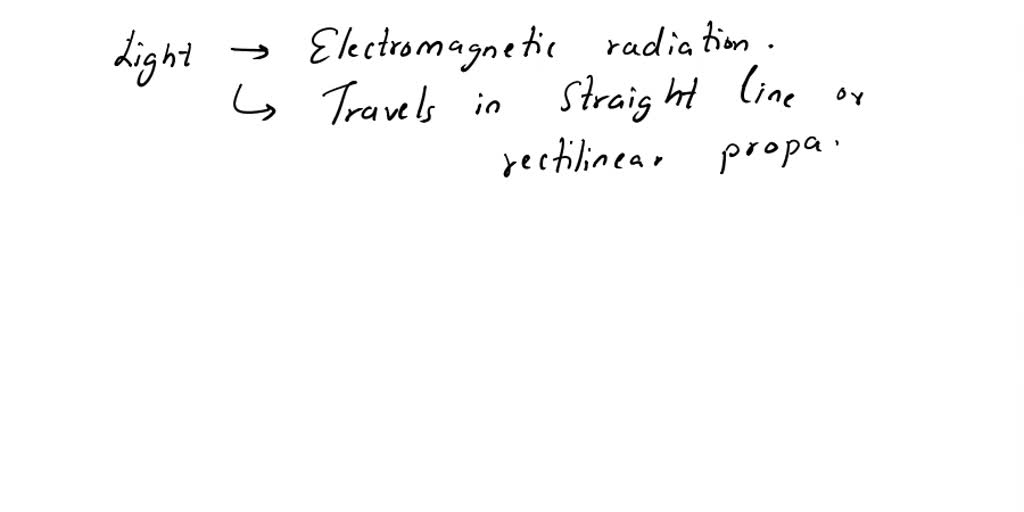 Light → Electromagnetic radiation.
↳ Travels in Straight line or
rectilinear propa.